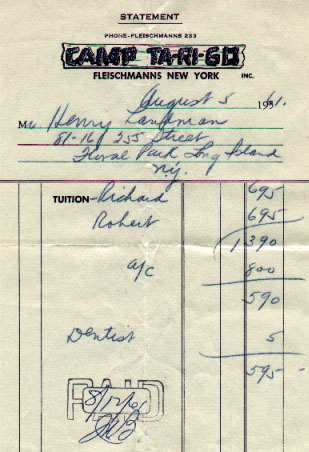 STATEMENT
PHONE-FLEISCHMANNS 233
CAMP TA-RI-GO
FLEISCHMANNS NEW YORK INC.
August 5 1961.
Mr. Henry Landman
81-16 255 Street
Floral Park Long Island
N.Y.
TUITION-Richard 695
Robert 695
1390
a/c 800
590
Dentist 5
595-
PAID
8/12/61